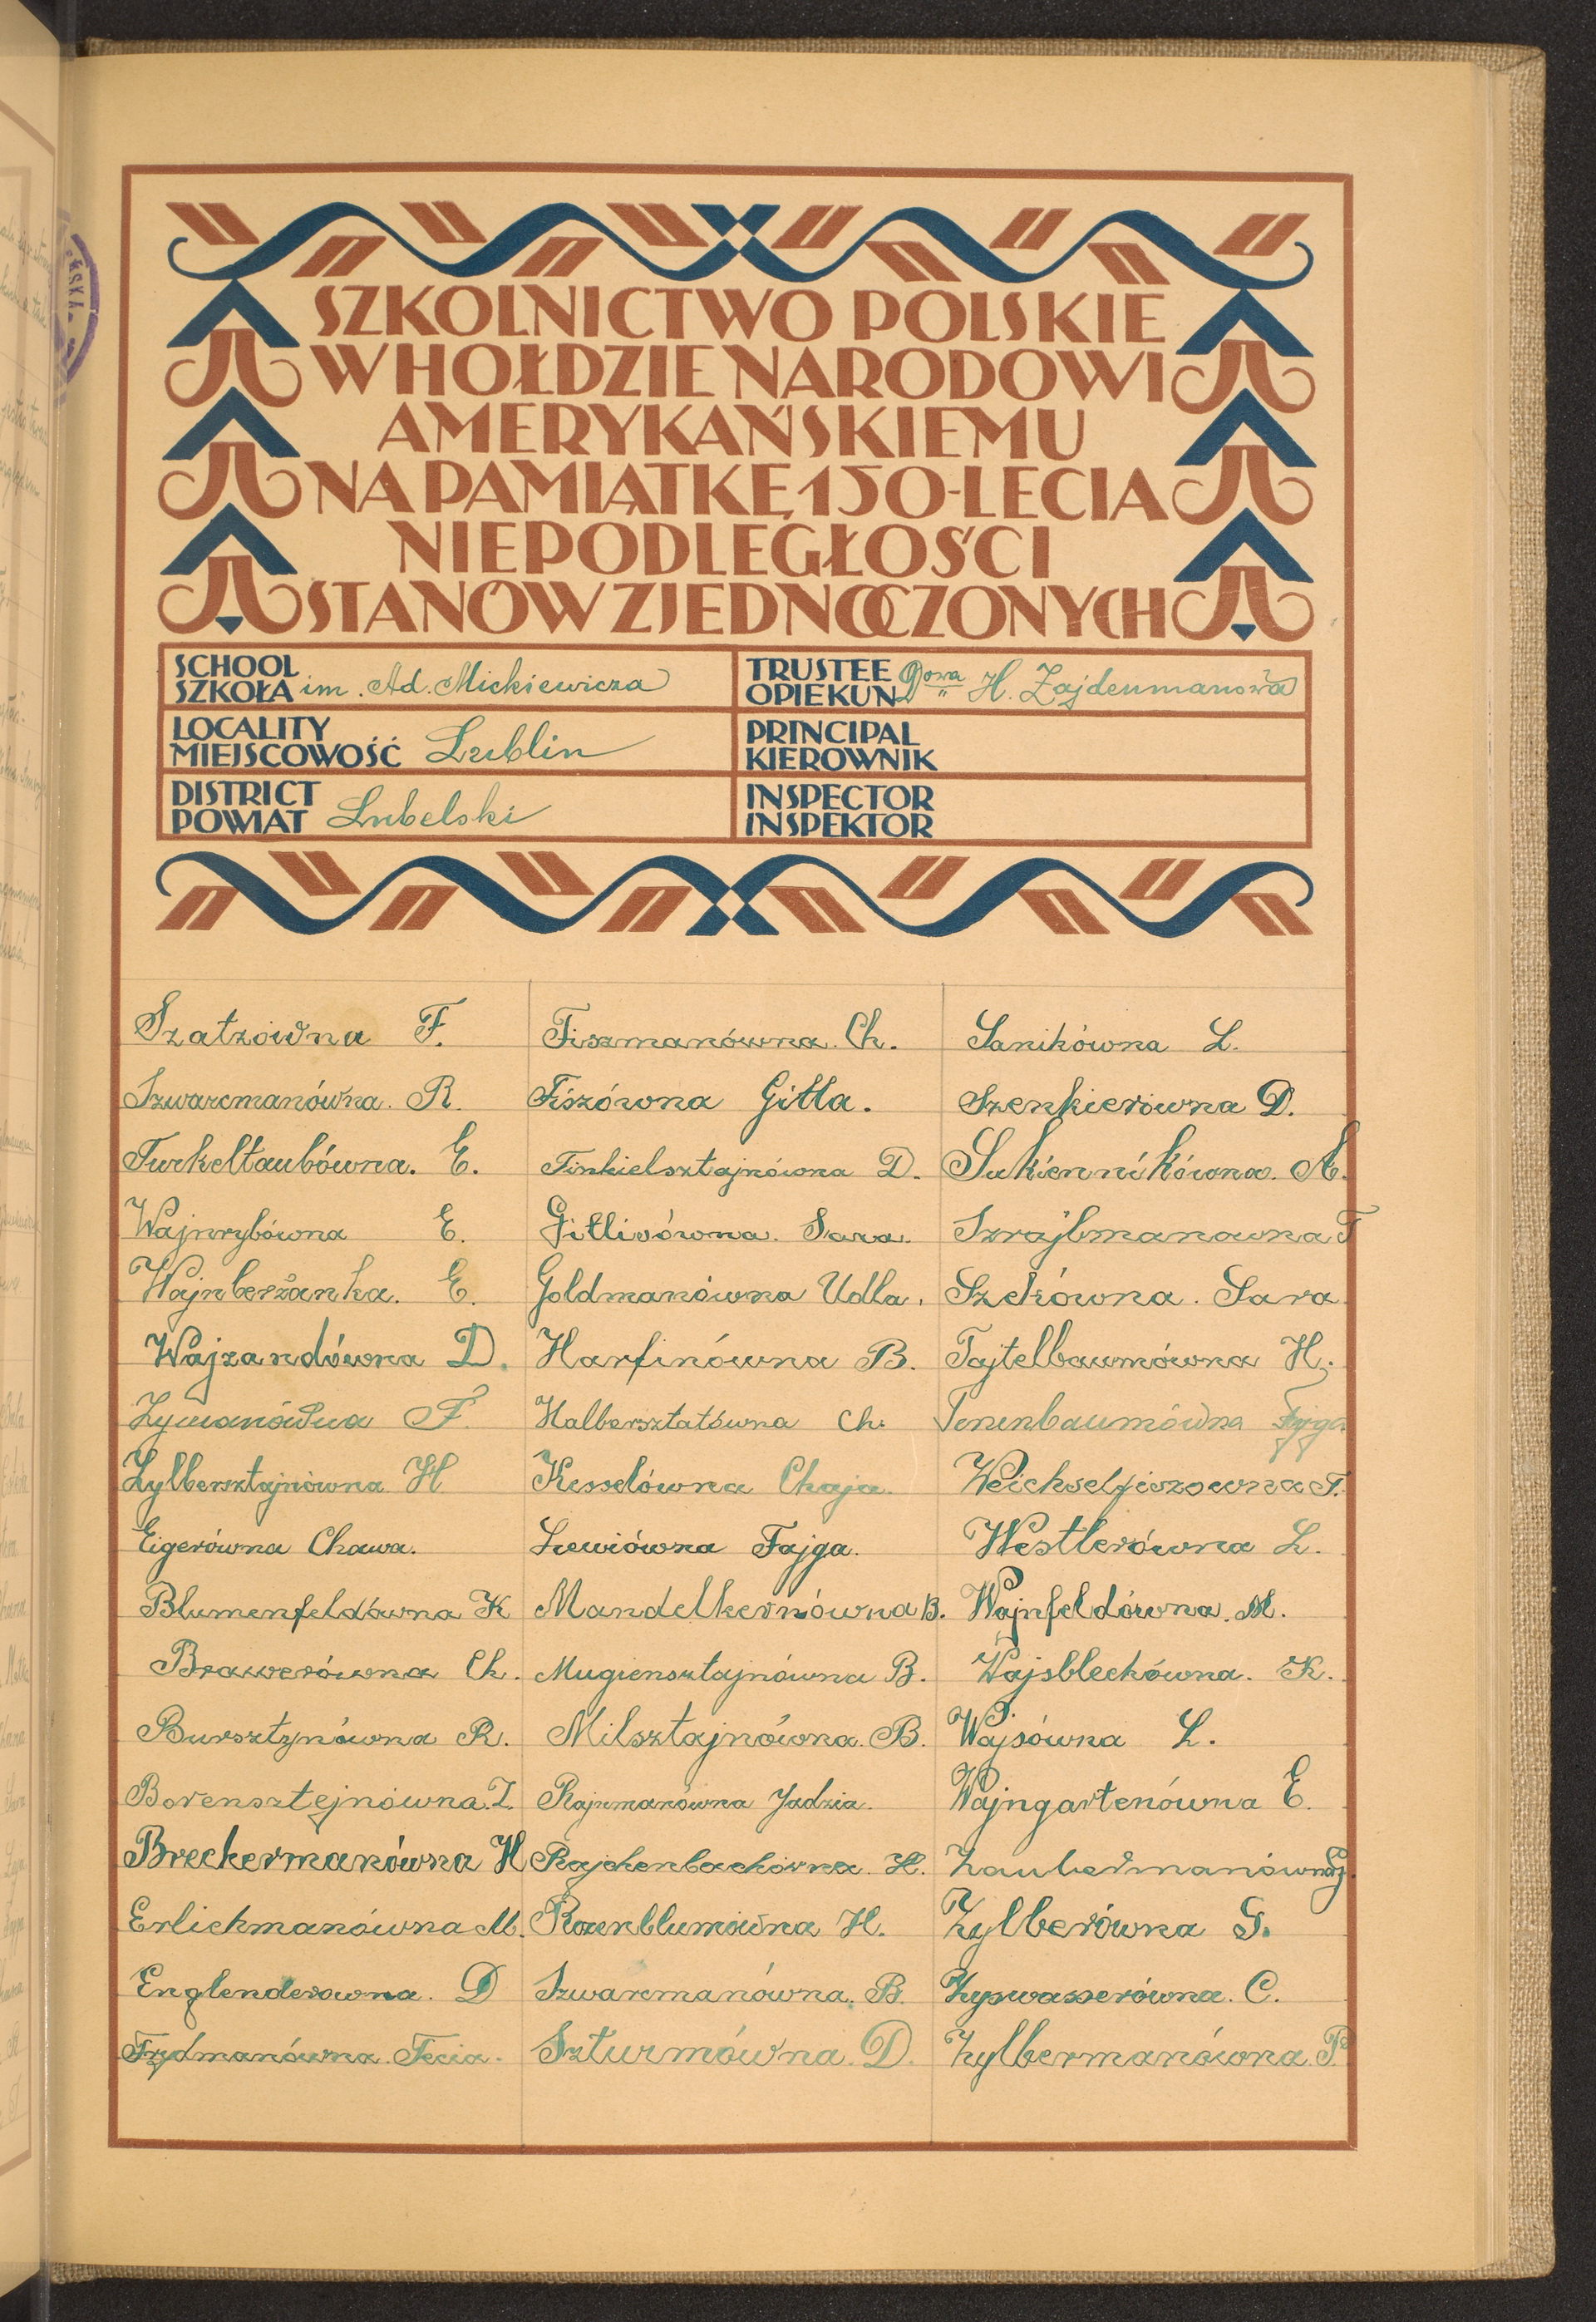 SZKOLNICTWO POLSKIE
W HOŁDZIE NARODOWI
AMERYKAŃSKIEMU
NA PAMIĄTKĘ 150-LECIA
NIEPODLEGŁOŚCI
STANÓW ZJEDNOCZONYCH
SCHOOL
SZKOŁA im. Ad. Mickiewicza
TRUSTEE
OPIEKUN H. Zajdenmanowa
LOCALITY
MIEJSCOWOŚĆ Lublin
PRINCIPAL
KIEROWNIK
DISTRICT
POWIAT Lubelski
INSPECTOR
INSPEKTOR
Szatzówna F.
Szwarcmanówna. R.
Turkeltaubówna. E.
Wajnrybówna E.
Wajnberżanka. E.
Wajzandówna D.
Zymanówna F.
Zylbersztajnówna H
Eigerówna Chawa.
Blumenfeldówna K
Brawerówna Ch.
Bursztynówna R.
Borensztejnówna. I.
Breckermanówna H
Erlichmanówna M.
Englenderowna. D
Frydmanówna. Fecia.
Fiszmanówna. Ch.
Fiszówna Gitla.
Finkielsztajnówna D.
Gitlisówna. Sara.
Goldmanówna Udla.
Harfinówna B.
Halbersztatówna Ch.
Kesselówna Chaja.
Lewiówna Fajga.
Mandelkernówna B.
Mugiensztajnówna B.
Milsztajnówna. B.
Rajzmanówna Jadzia.
Rajchenbachówna. H.
Rozenblumówna H.
Szwarcmanówna. B.
Szturmówna. D.
Sanikówna L.
Szenkierówna D.
Sukiennikówna. A.
Szrajbmanowna F
Szekówna. Sara
Tajtelbaumówna H.
Tenenbaumówna Fajga
Weichselfiszowna F.
Westlerówna L.
Wajnfeldówna. M.
Wajsblechówna. K.
Wajsówna L.
Wajngartenówna E.
Zaubermanówna
Zylberówna G.
Zyswasserówna. C.
Zylbermanówna. P.